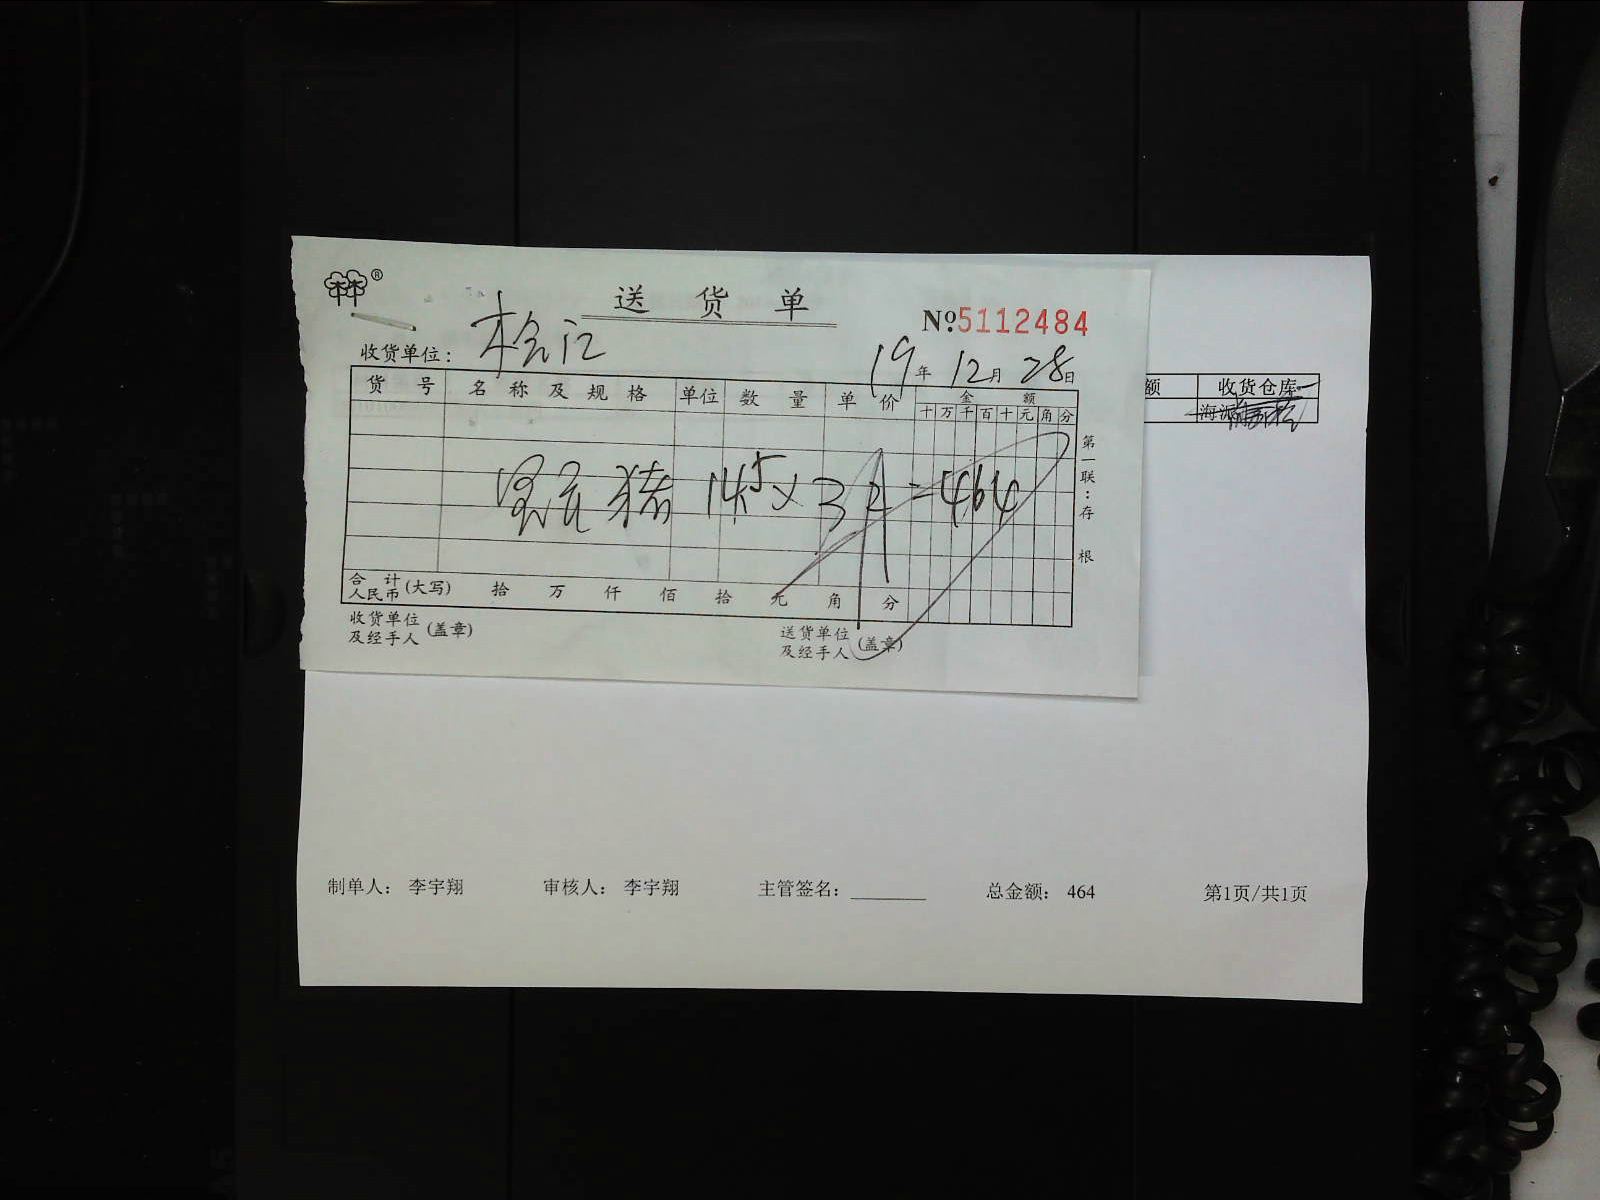 林® 送货单
No 5112484
收货单位： 松江
19年12月28日
货号 名称及规格 单位 数量 单价 金额
十万千百十元角分
额 收货仓库
海派
猪 14.5×32=464
第一联：存根
合计人民币(大写) 拾 万 仟 佰 拾 元 角 分
收货单位及经手人(盖章) 送货单位及经手人(盖章)
制单人： 李宇翔 审核人： 李宇翔 主管签名：________ 总金额： 464 第1页/共1页